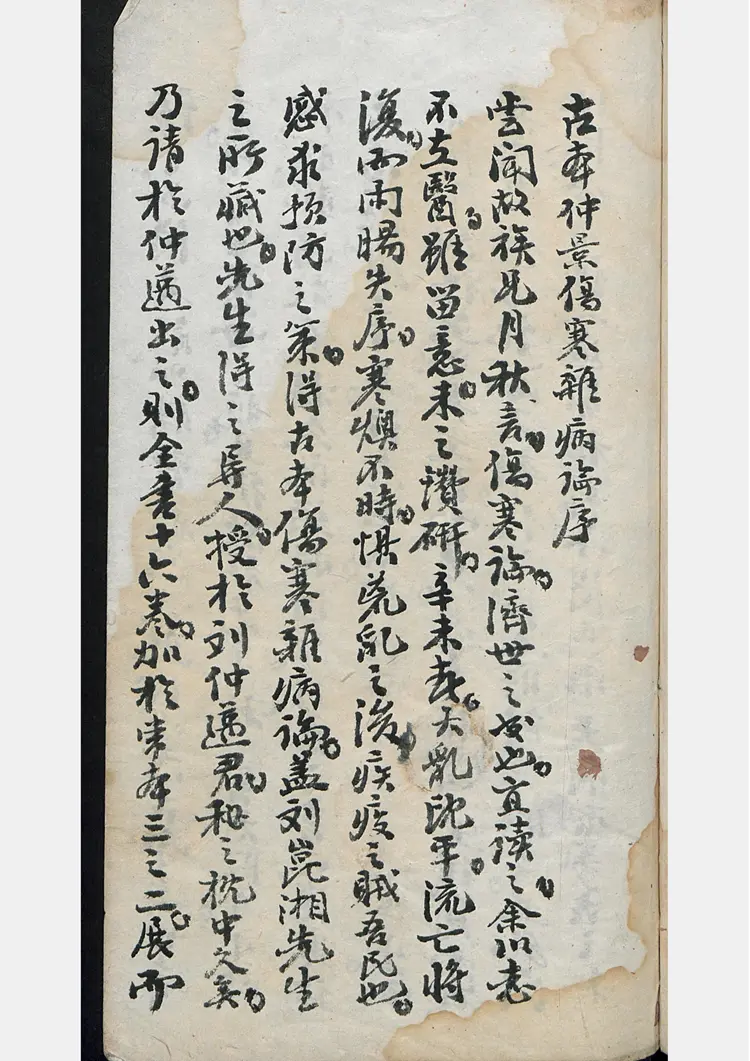 古本仲景傷寒雜病論序
嘗聞故族兄月秋言傷寒論濟世之書也宜讀之余以志
不立醫雖留意未之讚研辛未春大亂既平流亡將
復而雨暘失序寒燠不時惧荒亂之後疾疫之賊吾民也
感求預防之策得古本傷寒雜病論蓋刘崑湘先生
之所藏也先生得之异人授於刘仲邁君秘之枕中久矣
乃請於仲邁出之則全書十六卷加於常本三之二展而